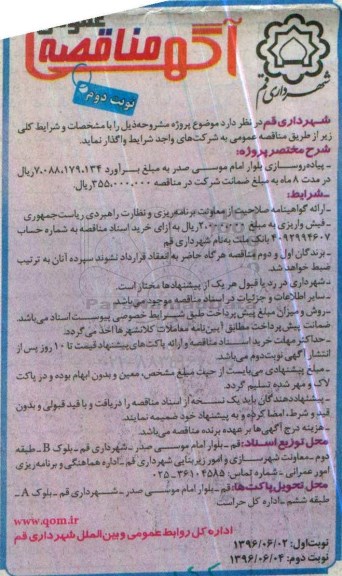 آگهی مناقصه عمومی
نوبت دوم
شهرداری قم
شهرداری قم در نظر دارد موضوع پروژه مشروحه ذیل را با مشخصات و شرایط کلی
زیر از طریق مناقصه عمومی به شرکت‌های واجد شرایط واگذار نماید.
شرح مختصر پروژه:
ـ پیاده‌روسازی بلوار امام موسی صدر به مبلغ برآورد ۷،۰۸۸،۱۷۹،۱۳۴ریال
در مدت ۸ ماه به مبلغ ضمانت شرکت در مناقصه ۳۵۵،۰۰۰،۰۰۰ریال.
ـ شرایط:
ـ ارائه گواهینامه صلاحیت از معاونت برنامه‌ریزی و نظارت راهبردی ریاست‌جمهوری
ـ فیش واریزی به مبلغ ریال به ازای خرید اسناد مناقصه به شماره حساب
۴۰۹۲۹۹۴۶۰۷ بانک ملت به‌نام شهرداری قم
ـ برندگان اول و دوم مناقصه هرگاه حاضر به انعقاد قرارداد نشوند سپرده آنان به ترتیب
ضبط خواهد شد.
ـ شهرداری در رد یا قبول هر یک از پیشنهادها مختار است.
ـ سایر اطلاعات و جزئیات در اسناد مناقصه موجود می‌باشد.
ـ روش و میزان مبلغ پیش پرداخت طبق شرایط خصوصی پیوست اسناد می‌باشد.
ضمانت پیش‌پرداخت مطابق آیین‌نامه معاملات کلانشهرها اخذ می‌گردد.
ـ حداکثر مهلت خرید اسناد مناقصه و ارائه پاکت‌های پیشنهاد قیمت تا ۱۰ روز پس از
انتشار آگهی نوبت‌دوم می‌باشد.
ـ مبلغ پیشنهادی می‌بایست از حیث مبلغ مشخص، معین و بدون ابهام بوده و در پاکت
لاک و مهر شده تسلیم گردد.
ـ پیشنهاددهندگان باید یک نسخه از اسناد مناقصه را دریافت و با قید قبولی و بدون
قید و شرط، امضا کرده و به پیشنهاد خود ضمیمه نمایند.
ـ هزینه درج آگهی‌ها بر عهده برنده مناقصه می‌باشد.
محل توزیع اسناد: قم ـ بلوار امام موسی صدر ـ شهرداری قم ـ بلوک B ـ طبقه
دوم ـ معاونت شهرسازی و امور زیربنایی شهرداری قم ـ اداره هماهنگی و برنامه‌ریزی
امور عمرانی ـ شماره تماس: ۳۶۱۰۴۵۸۵ ـ ۰۲۵
محل تحویل پاکت‌ها: قم ـ بلوار امام موسی صدر ـ شهرداری قم ـ بلوک A ـ
طبقه ششم ـ اداره کل حراست
www.qom.ir
اداره کل روابط عمومی و بین‌الملل شهرداری قم
نوبت اول: ۱۳۹۶/۰۶/۰۲
نوبت دوم: ۱۳۹۶/۰۶/۰۴